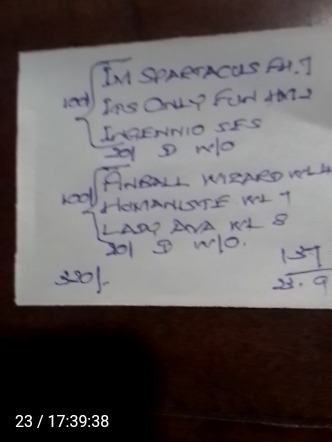 IM SPARTACUS FH.7
100/ ITS ONLY FUN
INGENNIO SES
20/ D W/O
100/ PINBALL WIZARD WL 4
HUMANISTE WL 7
LADY AVA WL 8
20/ D W/O.
137
23.9
23 / 17:39:38